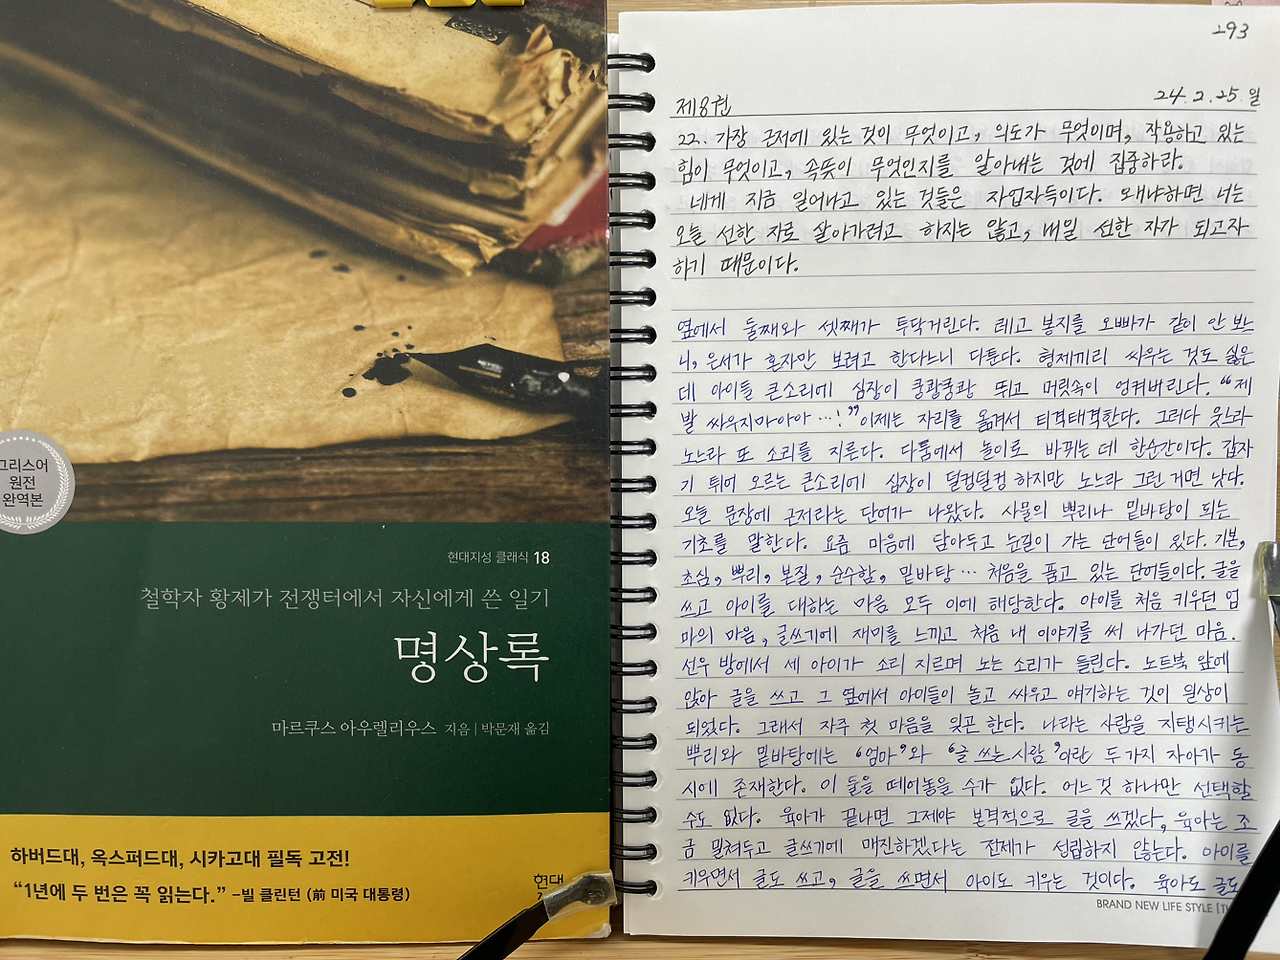 그리스어
원전
완역본
현대지성 클래식 18
철학자 황제가 전쟁터에서 자신에게 쓴 일기
명상록
마르쿠스 아우렐리우스 지음 | 박문재 옮김
하버드대, 옥스퍼드대, 시카고대 필독 고전!
“1년에 두 번은 꼭 읽는다.” –빌 클린턴 (前 미국 대통령)
현대
293
제8권 24.2.25.일
22. 가장 근저에 있는 것이 무엇이고, 의도가 무엇이며, 작용하고 있는
힘이 무엇이고, 속뜻이 무엇인지를 알아내는 것에 집중하라.
네게 지금 일어나고 있는 것들은 자업자득이다. 왜냐하면 너는
오늘 선한 자로 살아가려고 하지는 않고, 내일 선한 자가 되고자
하기 때문이다.
옆에서 둘째와 셋째가 투닥거린다. 레고 봉지를 오빠가 같이 안 보느
니, 은서가 혼자만 보려고 한다느니 다툰다. 형제끼리 싸우는 것도 싫은
데 아이들 큰소리에 심장이 쿵쾅쿵쾅 뛰고 머릿속이 엉켜버린다. “제
발 싸우지마아아 …!” 이제는 자리를 옮겨서 티격태격한다. 그러다 웃느라
노느라 또 소리를 지른다. 다툼에서 놀이로 바뀌는 데 한순간이다. 갑자
기 튀어 오르는 큰소리에 심장이 덜컹덜컹 하지만 노느라 그런 거면 낫다.
오늘 문장에 근저라는 단어가 나왔다. 사물의 뿌리나 밑바탕이 되는
기초를 말한다. 요즘 마음에 담아두고 눈길이 가는 단어들이 있다. 기본,
초심, 뿌리, 본질, 순수함, 밑바탕 … 처음을 품고 있는 단어들이다. 글을
쓰고 아이를 대하는 마음 모두 이에 해당한다. 아이를 처음 키우던 엄
마의 마음, 글쓰기에 재미를 느끼고 처음 내 이야기를 써 나가던 마음.
선우 방에서 세 아이가 소리 지르며 노는 소리가 들린다. 노트북 앞에
앉아 글을 쓰고 그 옆에서 아이들이 놀고 싸우고 얘기하는 것이 일상이
되었다. 그래서 자주 첫 마음을 잊곤 한다. 나라는 사람을 지탱시키는
뿌리와 밑바탕에는 ‘엄마’와 ‘글 쓰는 사람’이란 두 가지 자아가 동
시에 존재한다. 이 둘을 떼어놓을 수가 없다. 어느 것 하나만 선택할
수도 없다. 육아가 끝나면 그제야 본격적으로 글을 쓰겠다, 육아는 조
금 밀쳐두고 글쓰기에 매진하겠다는 전제가 성립하지 않는다. 아이를
키우면서 글도 쓰고, 글을 쓰면서 아이도 키우는 것이다. 육아도 글도
BRAND NEW LIFE STYLE